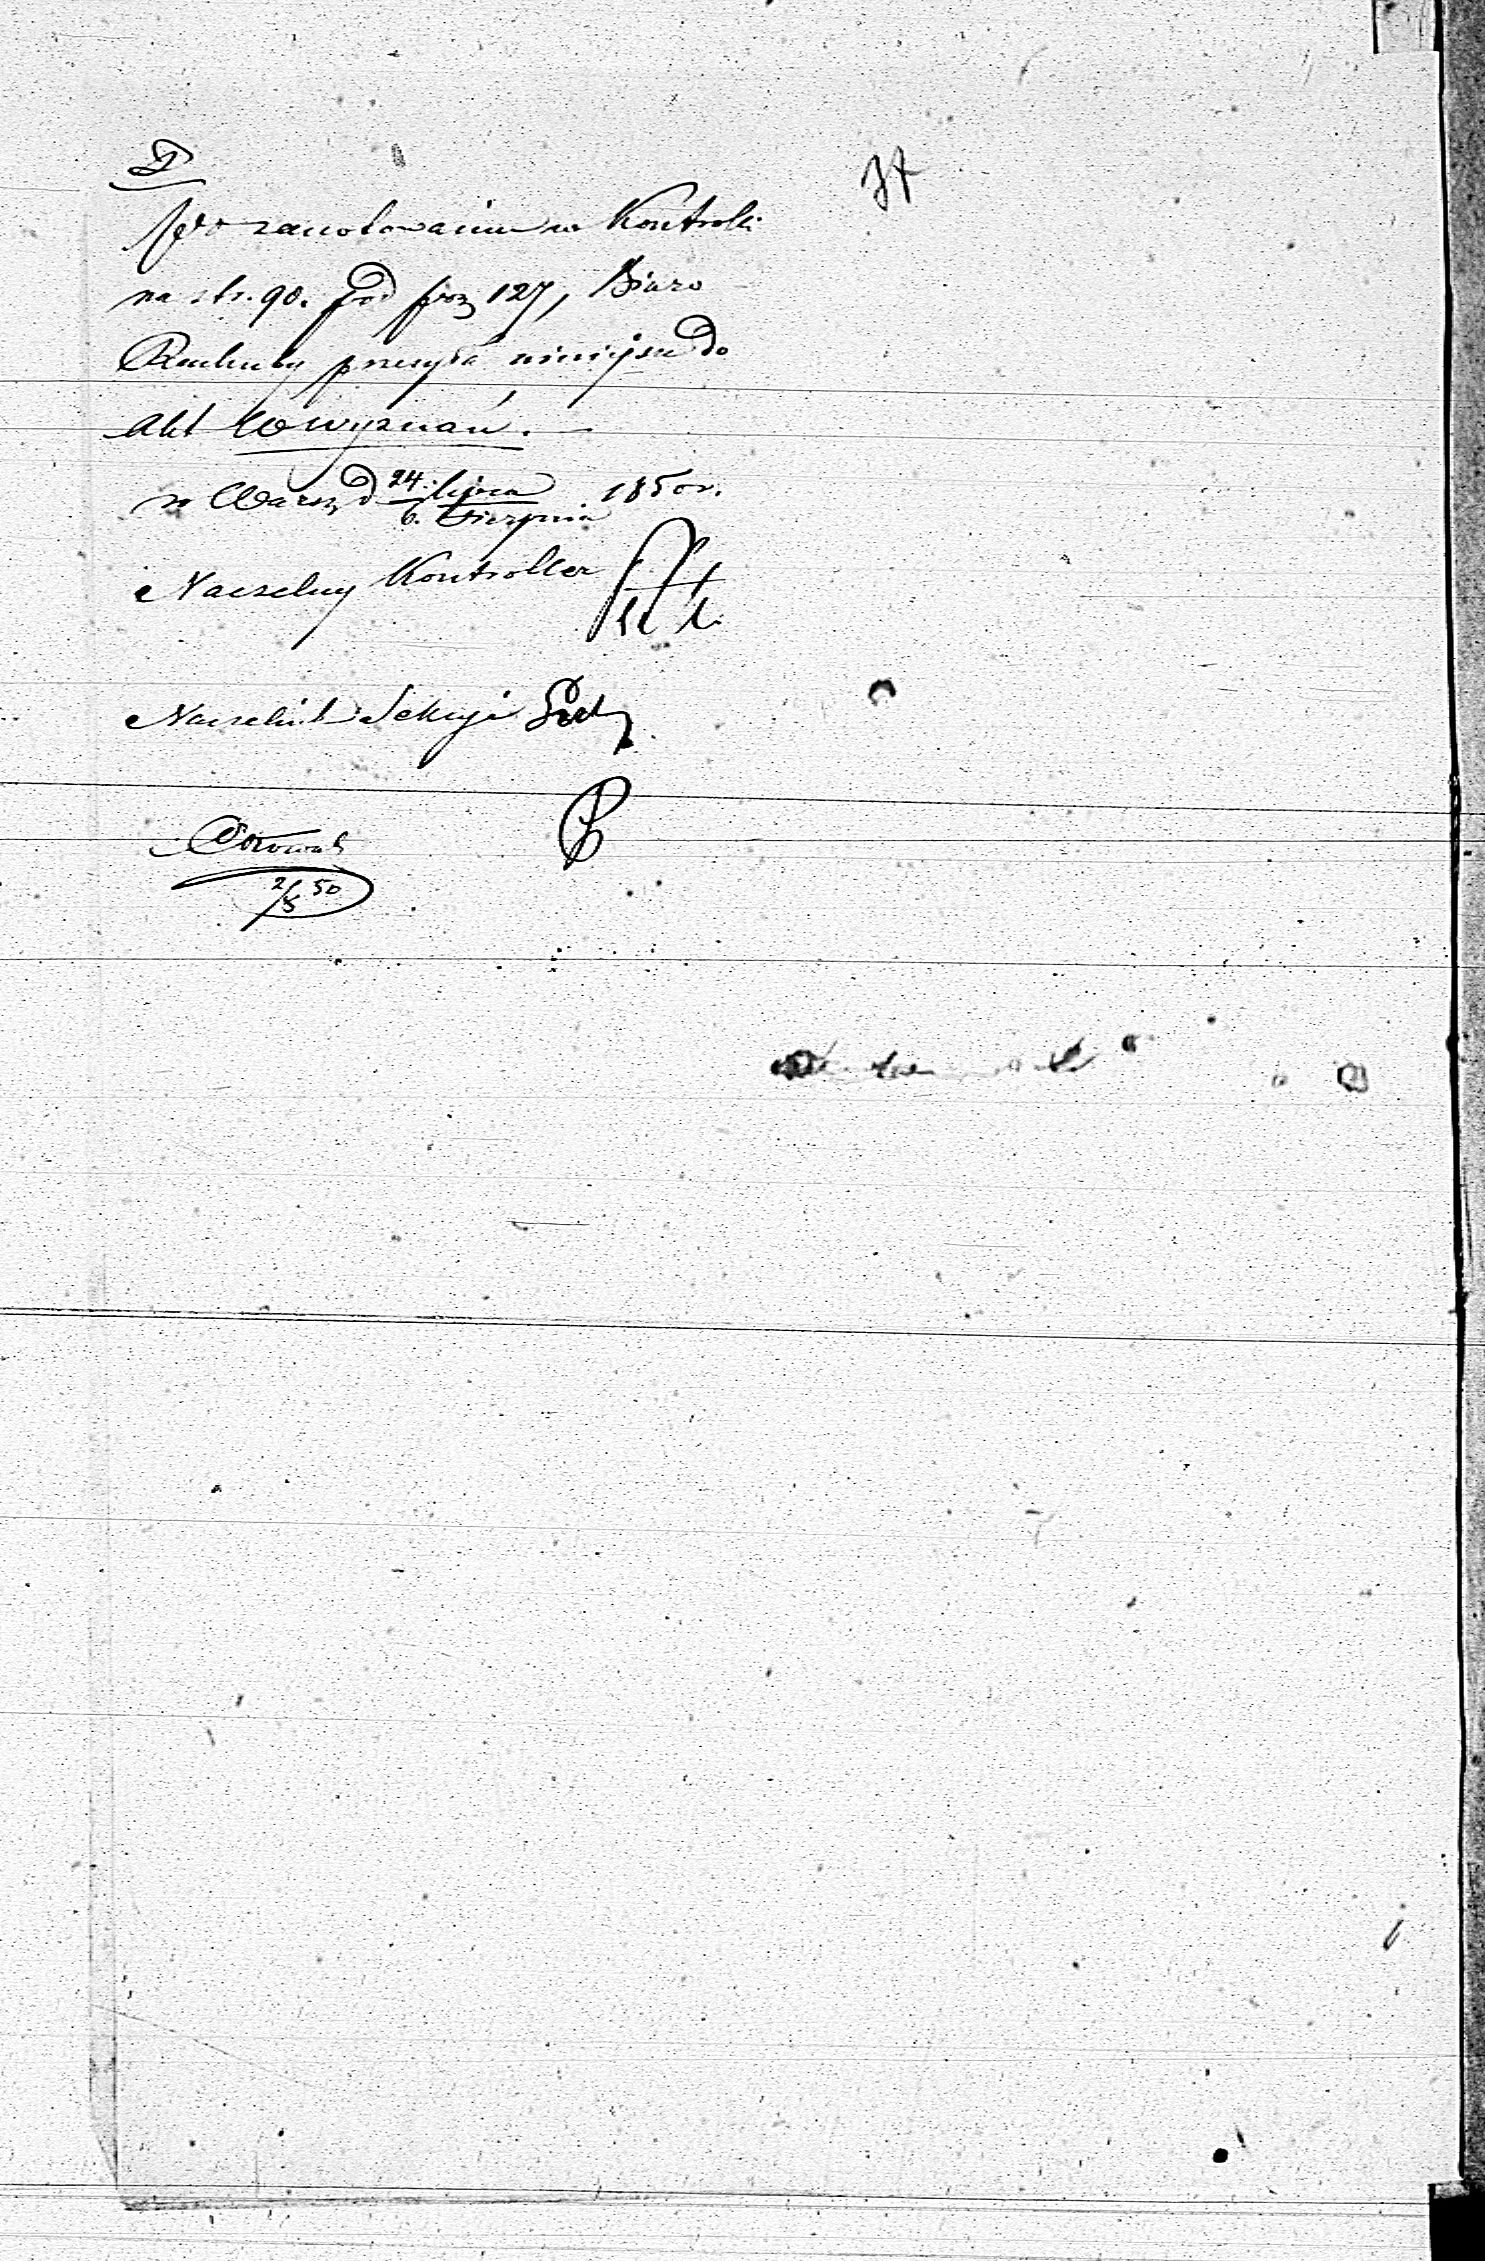 Po zanotowaniu w Kontroli
na str. 90. pod poz 127, Biuro
Rachuby przesyła niniejsze do
Akt Wo wyznań.
w Warsz d 24. lipca 1850 r.
6. Sierpnia
Naczelny Kontroller
Naczelnik Sekcyi
2/8 50